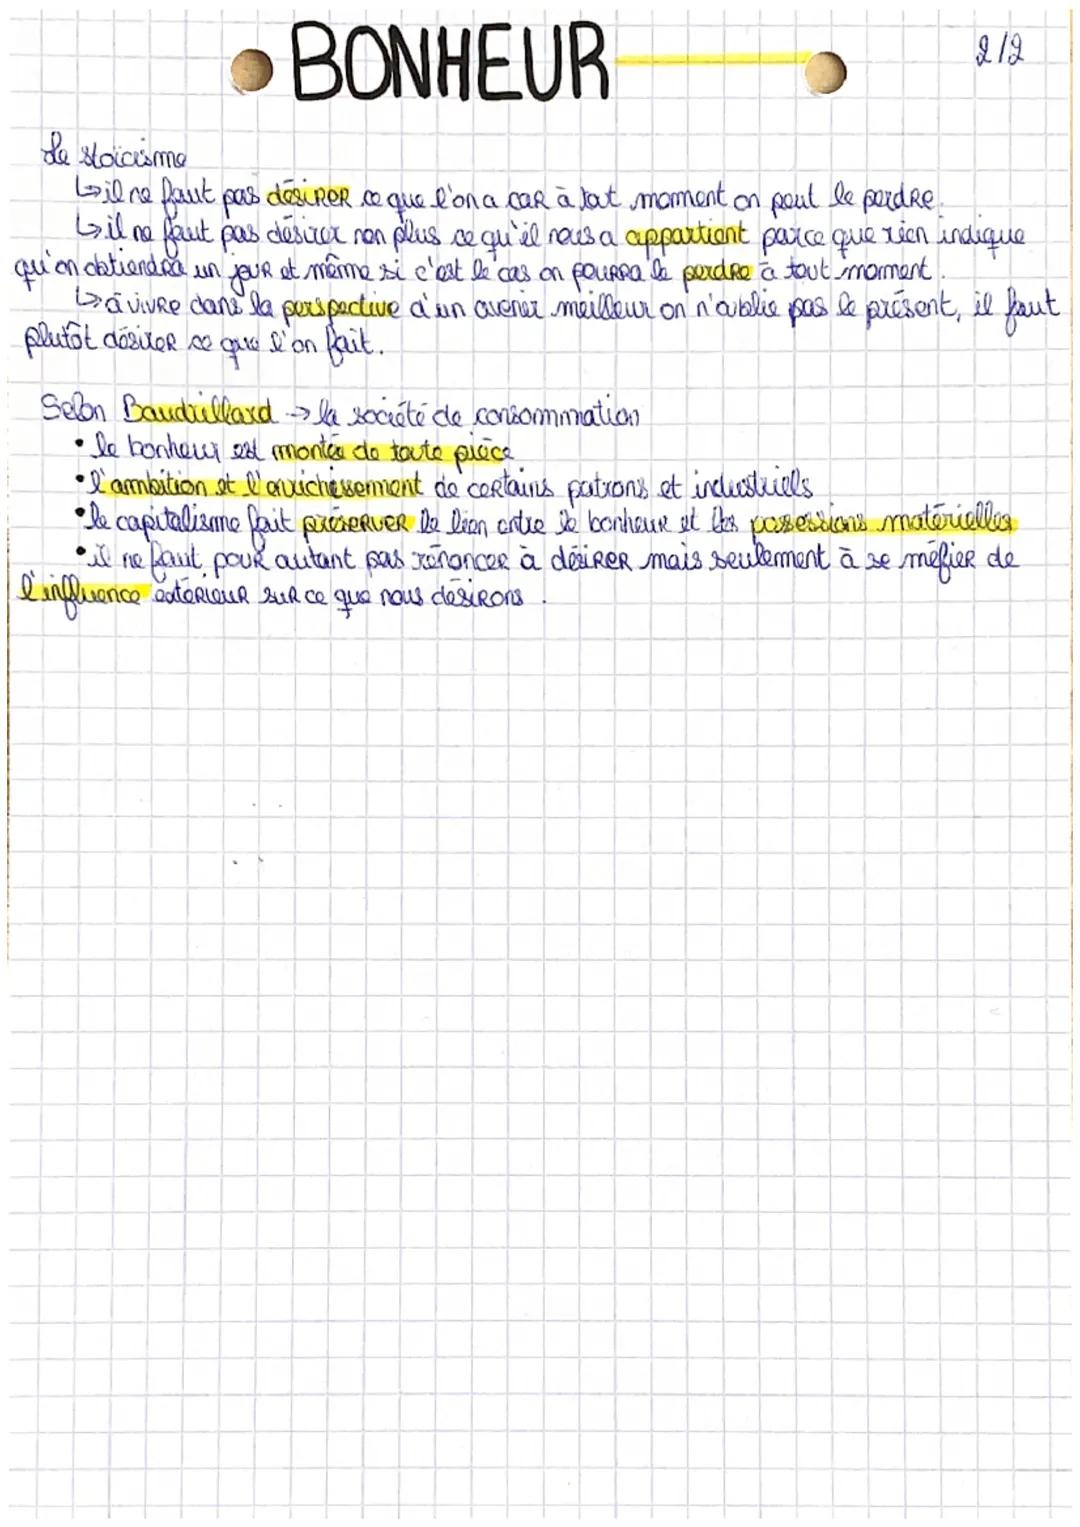 BONHEUR
2/2
Le stoïcisme
↳ il ne faut pas désirer ce que l'on a car à tout moment on peut le perdre.
↳ il ne faut pas désirer non plus ce qu'il nous a appartient parce que rien indique
qu'on obtiendra un jour et même si c'est le cas on pourra le perdre à tout moment.
↳ à vivre dans la perspective d'un avenir meilleur on n'oublie pas le présent, il faut
plutôt désirer ce que l'on fait.
Selon Baudrillard → la société de consommation
• le bonheur est montée de toute pièce
• l'ambition et l'enrichissement de certains patrons et industriels
• le capitalisme fait préserver le lien entre le bonheur et les possessions matérielles
• il ne faut pour autant pas rénoncer à désirer mais seulement à se méfier de
l'influence extérieur sur ce que nous désirons.